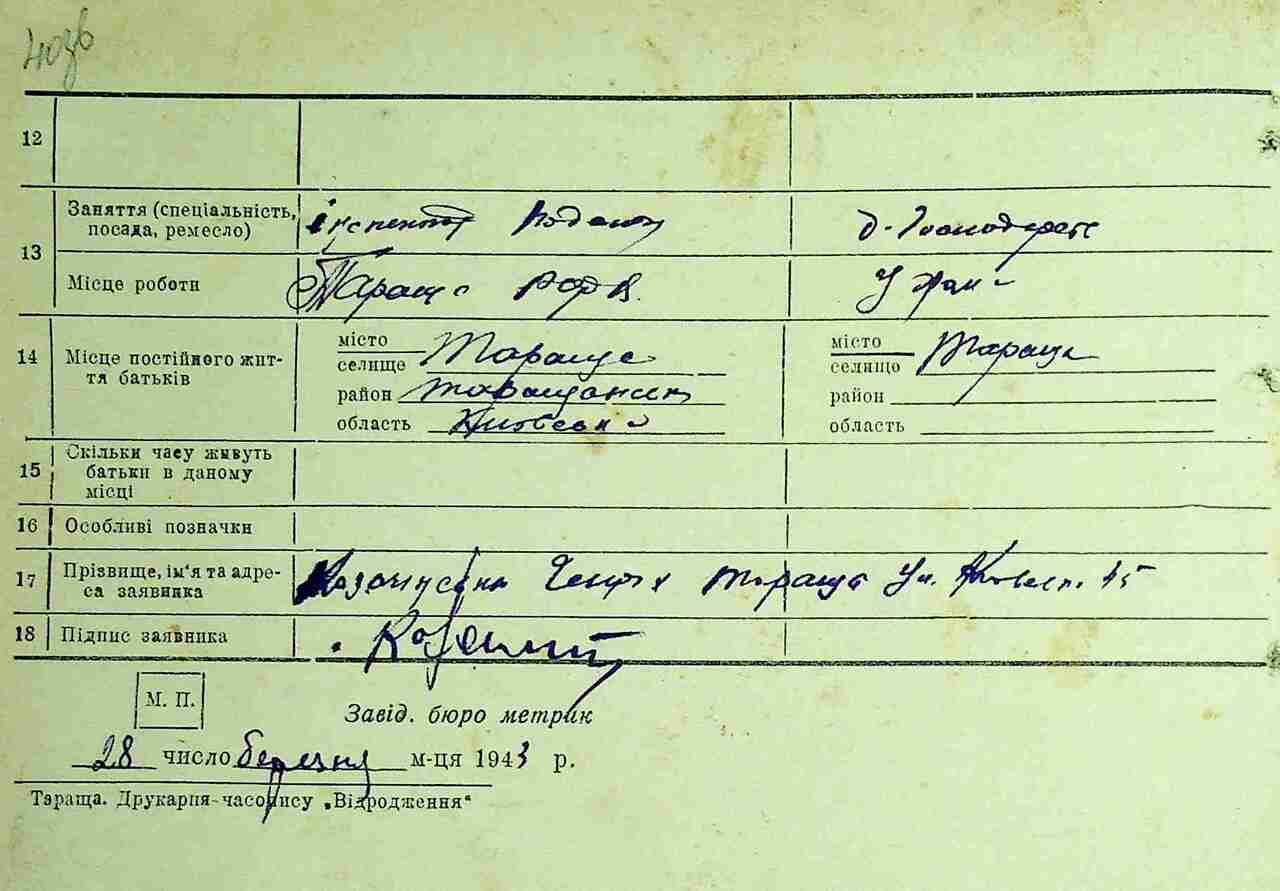 12
13 Заняття (спеціальність, посада, ремесло)
д. господарств
Місце роботи Тараща
14 Місце постійного жит-
тя батьків
місто
селище Тараща
район Таращанськ
область Київська
місто
селищо Тараща
район
область
15 Скільки часу живуть
батьки в даному
місці
16 Особливі позначки
17 Прізвище, ім'я та адре-
са заявника Тараща Ул. 15
18 Підпис заявника
М. П.
Завід. бюро метрик
28 число березня м-ця 1943 р.
Тараща. Друкарня-часопису „Відродження"